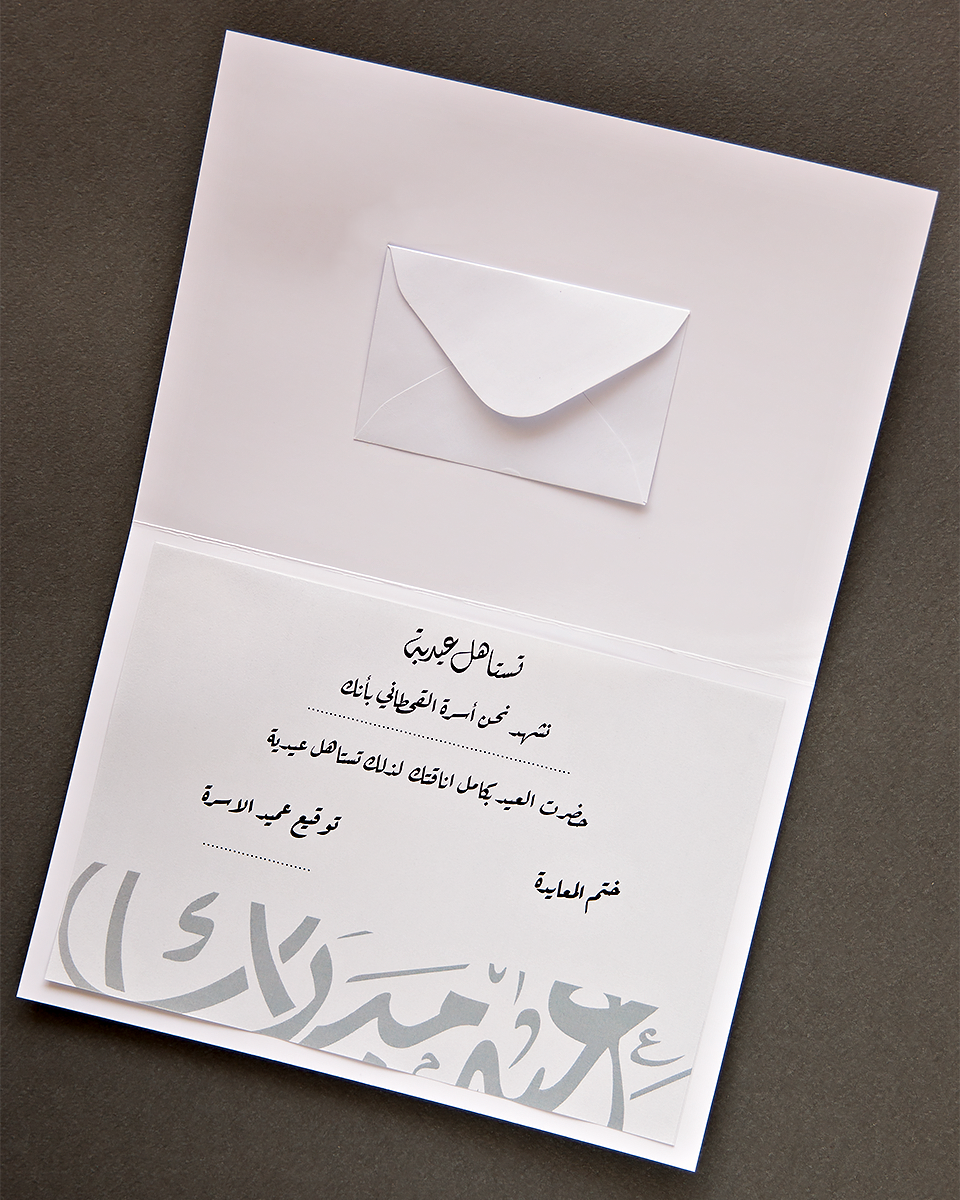 تستاهل عيدية
نشهد نحن أسرة القحطاني بأنك
حضرت العيد بكامل اناقتك لذلك تستاهل عيدية
توقيع عميد الاسرة
ختم المعايدة